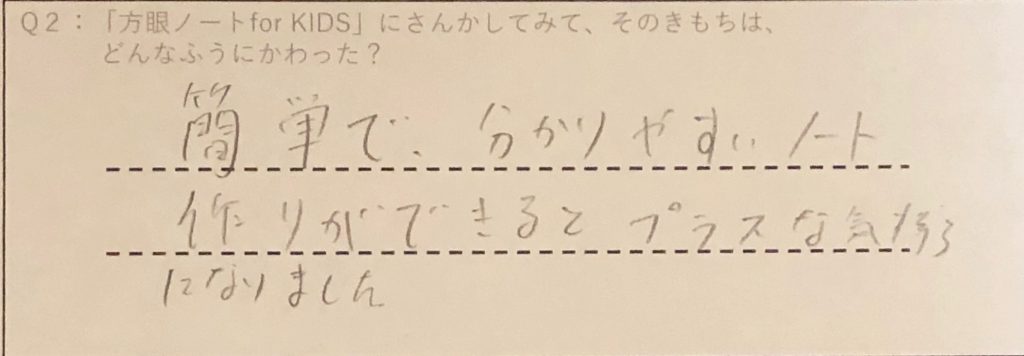 Q2：「方眼ノートfor KIDS」にさんかしてみて、そのきもちは、
どんなふうにかわった？
簡単で、分かりやすいノート
作りができるとプラスな気持ち
になりました